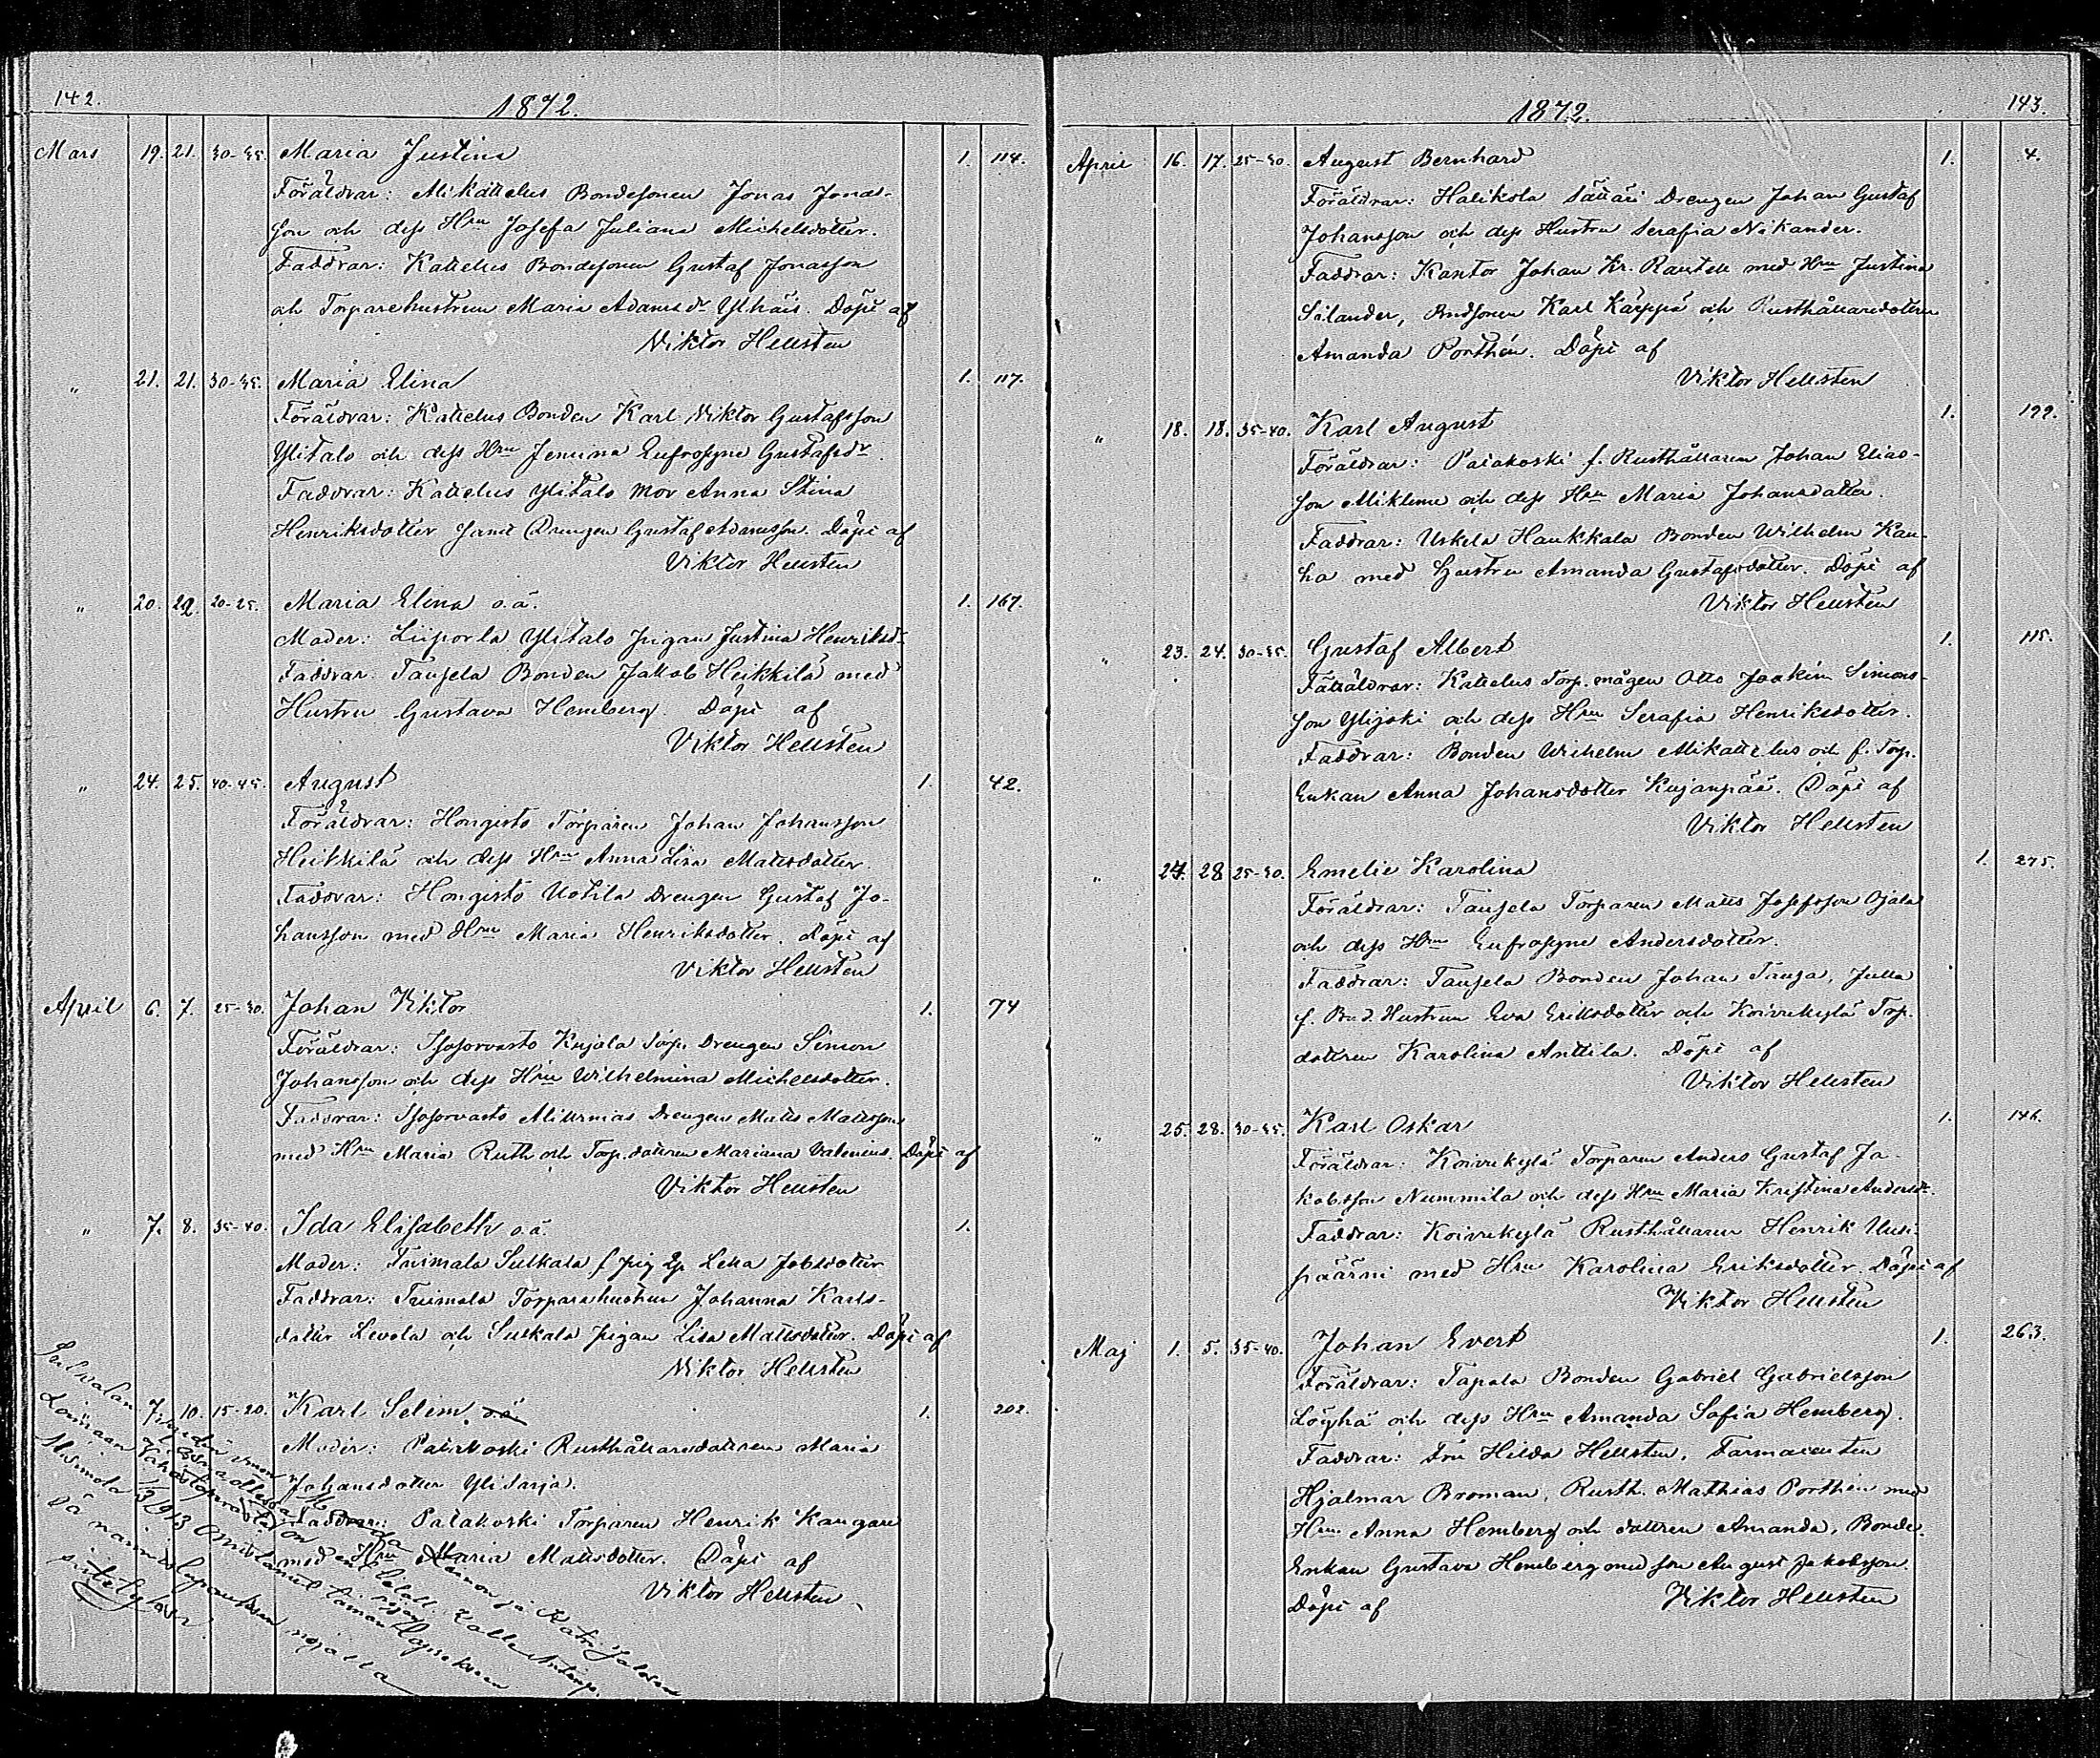 142.
1872.
Mars 19. 21. 30-35. Maria Justina 1. 114.
Föräldrar: Mikattelus Bondesonen Jonas Jonas-
son och dess Hru Josefa Juliana Michelsdotter.
Faddrar: Kattelus Bondesonen Gustaf Jonasson
och Torparehustrun Maria Adamsdr Ylhäis. Döpt af
Viktor Hellsten
" 21. 21. 30-35. Maria Elina 1. 117.
Föräldrar: Kattelus Bonden Karl Viktor Gustafsson
Ylitalo och dess Hru Jemina Eufrosyne Gustafsdr.
Faddrar: Kattelus Ylitalo mor Anna Stina
Henriksdotter samt Drengen Gustaf Adamsson. Döpt af
Viktor Hellsten
" 20. 22. 20-25. Maria Elina o.ä. 1. 167.
Moder: Liiporla Ylitalo pigan Justina Henriksdr
Faddrar: Tausela Bonden Jakob Heikkilä med
Hustru Gustava Hemberg. Döpt af
Viktor Hellsten
" 24. 25. 40-45. August 1. 42.
Föräldrar: Hongisto Torparen Johan Johansson
Heikkilä och dess Hru Anna Lisa Mattsdotter.
Faddrar: Hongisto Uotila Drengen Gustaf Jo-
hansson med Hru Maria Henriksdotter. Döpt af
Viktor Hellsten
April 6. 7. 25-30. Johan Viktor 1. 74
Föräldrar: Isosorvasto Kujala Torp. Drengen Simon
Johansson och dess Hru Wilhelmina Michelsdotter.
Faddrar: Isosorvasto Drengen Matts Mattsson
med Hru Maria Ruth och Torp.dottren Mariana Valenius. Döpt af
Viktor Hellsten
" 7. 8. 35-40. Ida Elisabeth o.ä. 1.
Moder: Toimala Sulkala f. pig Lena Jobsdotter
Faddrar: Torparehustrun Johanna Karls-
dotter Levola och pigan Lisa Mattsdotter. Döpt af
Viktor Hellsten
7. 10. 15-20. Karl Selim o.ä. 1. 202.
Moder: Patakoski Rusthållaredottren Maria
Johansdotter Ylitarja.
Faddrar: Patakoski Torparen Henrik Kangare
med Hru Maria Mattsdotter. Döpt af
Viktor Hellsten
143.
1872.
April 16. 17. 25-30. August Bernhard 1. 4.
Föräldrar: Halikola Sätäri Drengen Johan Gustaf
Johansson och dess Hustru Serafia Nikander.
Faddrar: Kantor Johan Kr. Rautell med Hru Justina
Sälander, Bndsonen Karl Käppä och Rusthållaredottren
Amanda Porthén. Döpt af
Viktor Hellsten
" 18. 18. 35-40. Karl August 1. 199.
Föräldrar: Patakoski f. Rusthållaren Johan Elias-
son och dess Hru Maria Johansdotter.
Faddrar: Uskela Haukkala Bonden Wilhelm Kau-
ha med Hustru Amanda Gustafsdotter. Döpt af
Viktor Hellsten
" 23. 24. 30-35. Gustaf Albert 1. 115.
Föräldrar: Kattelus Torp. mågen Otto Joakim Simons-
son Ylijoki och dess Hru Serafia Henriksdotter.
Faddrar: Bonden Wilhelm Mikattelus och f. Torp.
Enkan Anna Johansdotter Kujanpää. Döpt af
Viktor Hellsten
" 24. 28. 25-30. Emelie Karolina 1. 275.
Föräldrar: Tausela Torparen Matts Josefsson Ojala
och dess Hru Eufrosyne Andersdotter.
Faddrar: Tausela Bonden Johan Tauga, Julla
f. Bnd. Hustrun Eva Eriksdotter och Koivukylä Torp.
dottren Karolina Anttila. Döpt af
Viktor Hellsten
" 25. 28. 30-35. Karl Oskar 1. 146.
Föräldrar: Koivukylä Torparen Anders Gustaf Ja-
kobsson Nummila och dess Hru Maria Kristina Andersdr.
Faddrar: Koivukylä Rusthållaren Henrik Uusi-
päärni med Hru Karolina Eriksdotter. Döpt af
Viktor Hellsten
Maj 1. 5. 35-40. Johan Evert 1. 263.
Föräldrar: Tapala Bonden Gabriel Gabrielsson
Löyhä och dess Hru Amanda Sofia Hemberg.
Faddrar: Fru Hilda Hellsten, Farmaceuten
Hjalmar Broman, Rusth. Mathias Porthén med
Hru Anna Hemberg och dottren Amanda, Bonde-
Enkan Gustava Hemberg med son August Jakobsson.
Döpt af Viktor Hellsten